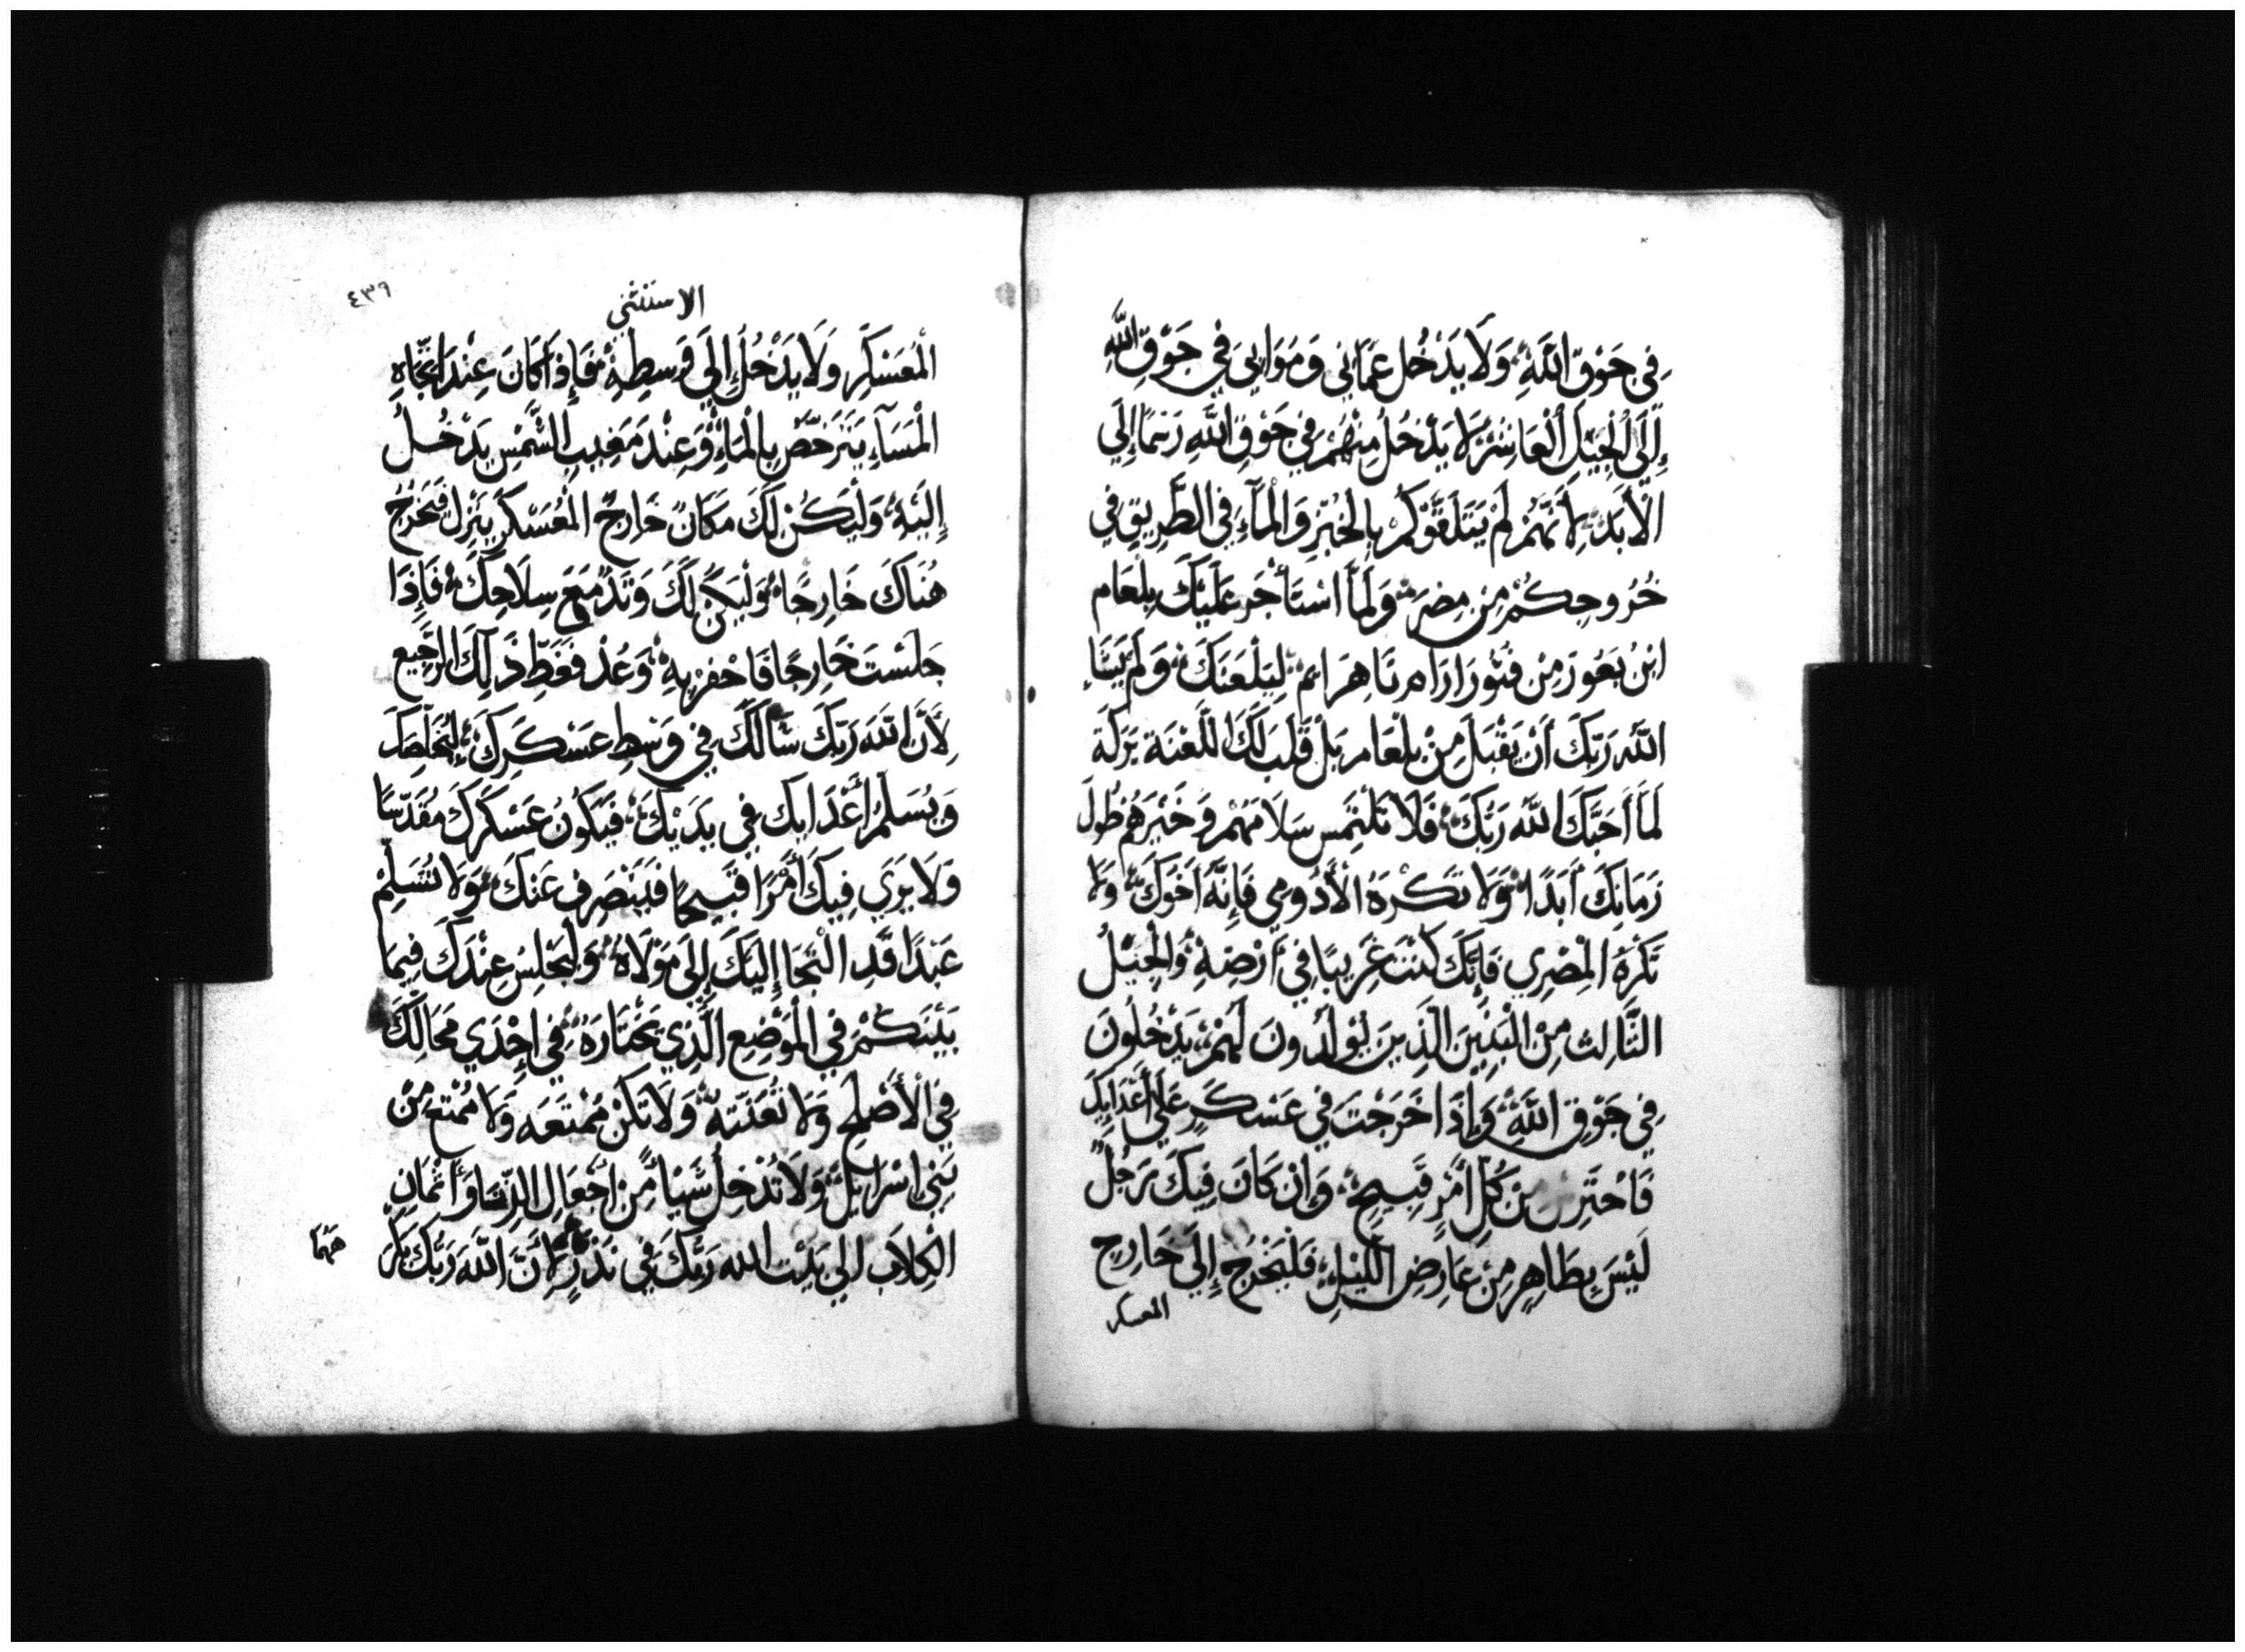 فِي جَوْقِ اللَّهِ وَلَا يَدْخُل عَمَّانِي وَمَوَابِيَ فِي جَوْقِ اللَّهِ
إِلَى الْجِيلَ الْعَاشِرْ لَا يَدْخُلُ مِنْهُمْ فِي جَوْقِ اللَّهِ رَسْمًا إِلَي
الْأَبَدِ لِأَنَّهُمْ لَمْ يَتَلَقَّوْكُمْ بِالْخُبْزِ وَالْمَآءِ فِي الطَّرِيقِ فِي
خُرُوجِكُمْ مِن مِصْرَ وَلَمَّا اسْتَأْجَر عَلَيْكَ بِلْعَام
ابْنُ بَعُورَ مِن فَتُورَ ارَام نَاهِرَايِم لِيَلْعَنَكَ وَلَمْ يَشَاءِ
اللَّه رَبّكَ أَنْ يَقْبَلَ مِنْ بِلْعَام بَل قَلَبَ لَكَ اللَّعْنَة بَرَكَة
لَمَّا أَحَبَّكَ اللَّه رَبُّكَ فَلَا تَلْتَمِس سَلَامَهُمْ وَخَيْرَهُمْ طُولَ
زَمَانِكَ أَبَدًا وَلَا تَكْرَهُ الْأَدُومِي فَإِنَّهُ أَخَوكَ وَلَا
تَكْرَهُ الْمِصْرِي فَإِنَّكَ كُنْتَ غَرِيبًا فِي أَرْضِهِ وَالْجِيْلُ
الثَّالِث مِنْ الْبَنِينَ الَّذِينَ يُولَدُونَ لَهُمْ يَدْخُلُونَ
فِي جَوْقِ اللَّهِ وَإِذَا خَرَجْتَ فِي عَسْكَرٍ عَلَي أَعْدَايِكَ
فَاحْتَرِس مِن كُلِّ أَمْرٍ قَبِيحٍ وَإِن كَانَ فِيكَ رَجُلٌ
لَيْسَ بِطَاهِرٍ مِنْ عَارِضِ اللَّيْلِ فَلْيَخْرُج إِلَي خَارِج
المعسكر
الاستثنى
٤٣٩
الْمُعَسْكَرِ وَلَا يَدْخُلُ إِلَي وَسِطِهِ فَإِذَا كَانَ عِنْدَ اتِّجَاهِ
الْمَسَآءِ يَتَرَحَّضْ بِالْمَاءِ وَعِنْدَ مَغِيبِ الشَّمْسِ يَدْخُلُ
إِلَيْهِ وَلْيَكُنْ لَكَ مَكَانٌ خَارِجٌ الْمُعَسْكَرِ يَنْزِل فَتَخْرُجُ
هُنَاكَ خَارِجًا وَلْيَكُنْ لَكَ وَتَدٌ مَعَ سِلَاحِكَ فَإِذَا
جَلَسْتَ خَارِجًا فَاحْفِرْ بِهِ وَعُدْ فَغَطِّ ذَلِكَ الرَّجِيع
لِأَنَّ اللَّهَ رَبّكَ سَالَكَ فِي وَسْطِ عَسْكَرِكَ لِيُخَلِّصَكَ
وَيُسَلِّمُ أَعْدَايِكَ فِي يَدَيْكَ فَيَكُونُ عَسْكَرَكَ مُقَدَّسًا
وَلَا يَرَي فِيكَ أَمْرًا قَبِيحًا فَيَنْصَرِف عَنْكَ وَلَا تُسَلِّمْ
عَبْدًا قَدِ الْتَجَا إِلَيْكَ إِلَى مَوْلَاهُ وَلْيَجْلِسْ عِنْدَكَ فِيمَا
بَيْنَكُمْ فِي الْمَوْضِعِ الَّذِي يَخْتَارَهُ فِي إِحْدَي مَحَالِّكَ
فِي الْأَصْلَحِ وَلَا تُعَنِّتهُ وَلَا تَكُنْ مُمْتِعَه وَلَا مُمْتِع مِنْ
بَنِي إِسْرَايِيلَ وَلَا تُدْخِلُ شَيْأً مِنْ أَجْعَالِ الزِّنَا وَأَثْمَانِ
الْكِلَابِ الي بَيْتِ الله رَبِّكَ فِي نَذْرٍ لِأَنَّ اللَّهَ رَبُّكَ يَكْرَ
هَهُمَا